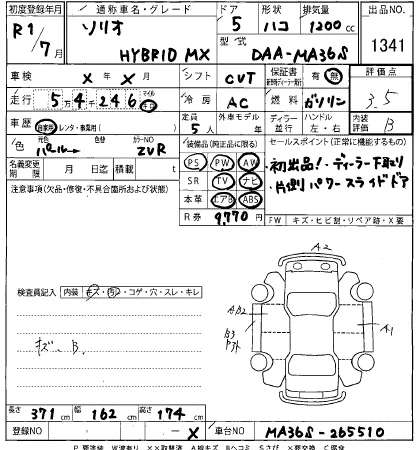 初度登録年月 通称車名・グレード ドア 形状 排気量 出品NO.
R1/7月 ソリオ 5 ハコ 1200cc
HYBRID MX 型式 DAA-MA36S 1341
車検 X年X月 シフト CVT 保証書 有・無 評価点
走行 54246 マイル キロ 冷房 AC 燃料 ガソリン 3.5
車歴 自家用・レンタ・事業用( ) 定員 5人 外車モデル 年 ディーラー 並行 ハンドル 左・右 内装評価 B
色 パール 色替 カラーNO ZVR 装備品(純正品に限る) セールスポイント(正常に機能するもの)
名義変更期限 月 日迄 積載 t PS PW AW 初出品!・ディーラー下取り
注意事項(欠品・修復・不具合箇所および状態) SR TV ナビ ・片側パワースライドドア
本革 エアB ABS
R券 9,770円 FW キズ・ヒビ割・リペア跡・X要
A2
検査員記入 内装 キズ・汚・コゲ・穴・スレ・キレ
キズ、B. B3 A1
長さ 371cm 幅 162cm 高さ 174cm
登録NO ー X 車台NO MA36S-265510
P要塗装 W波有り XX取替済 A線キズ Bヘコミ Sさび X要交換 C腐食